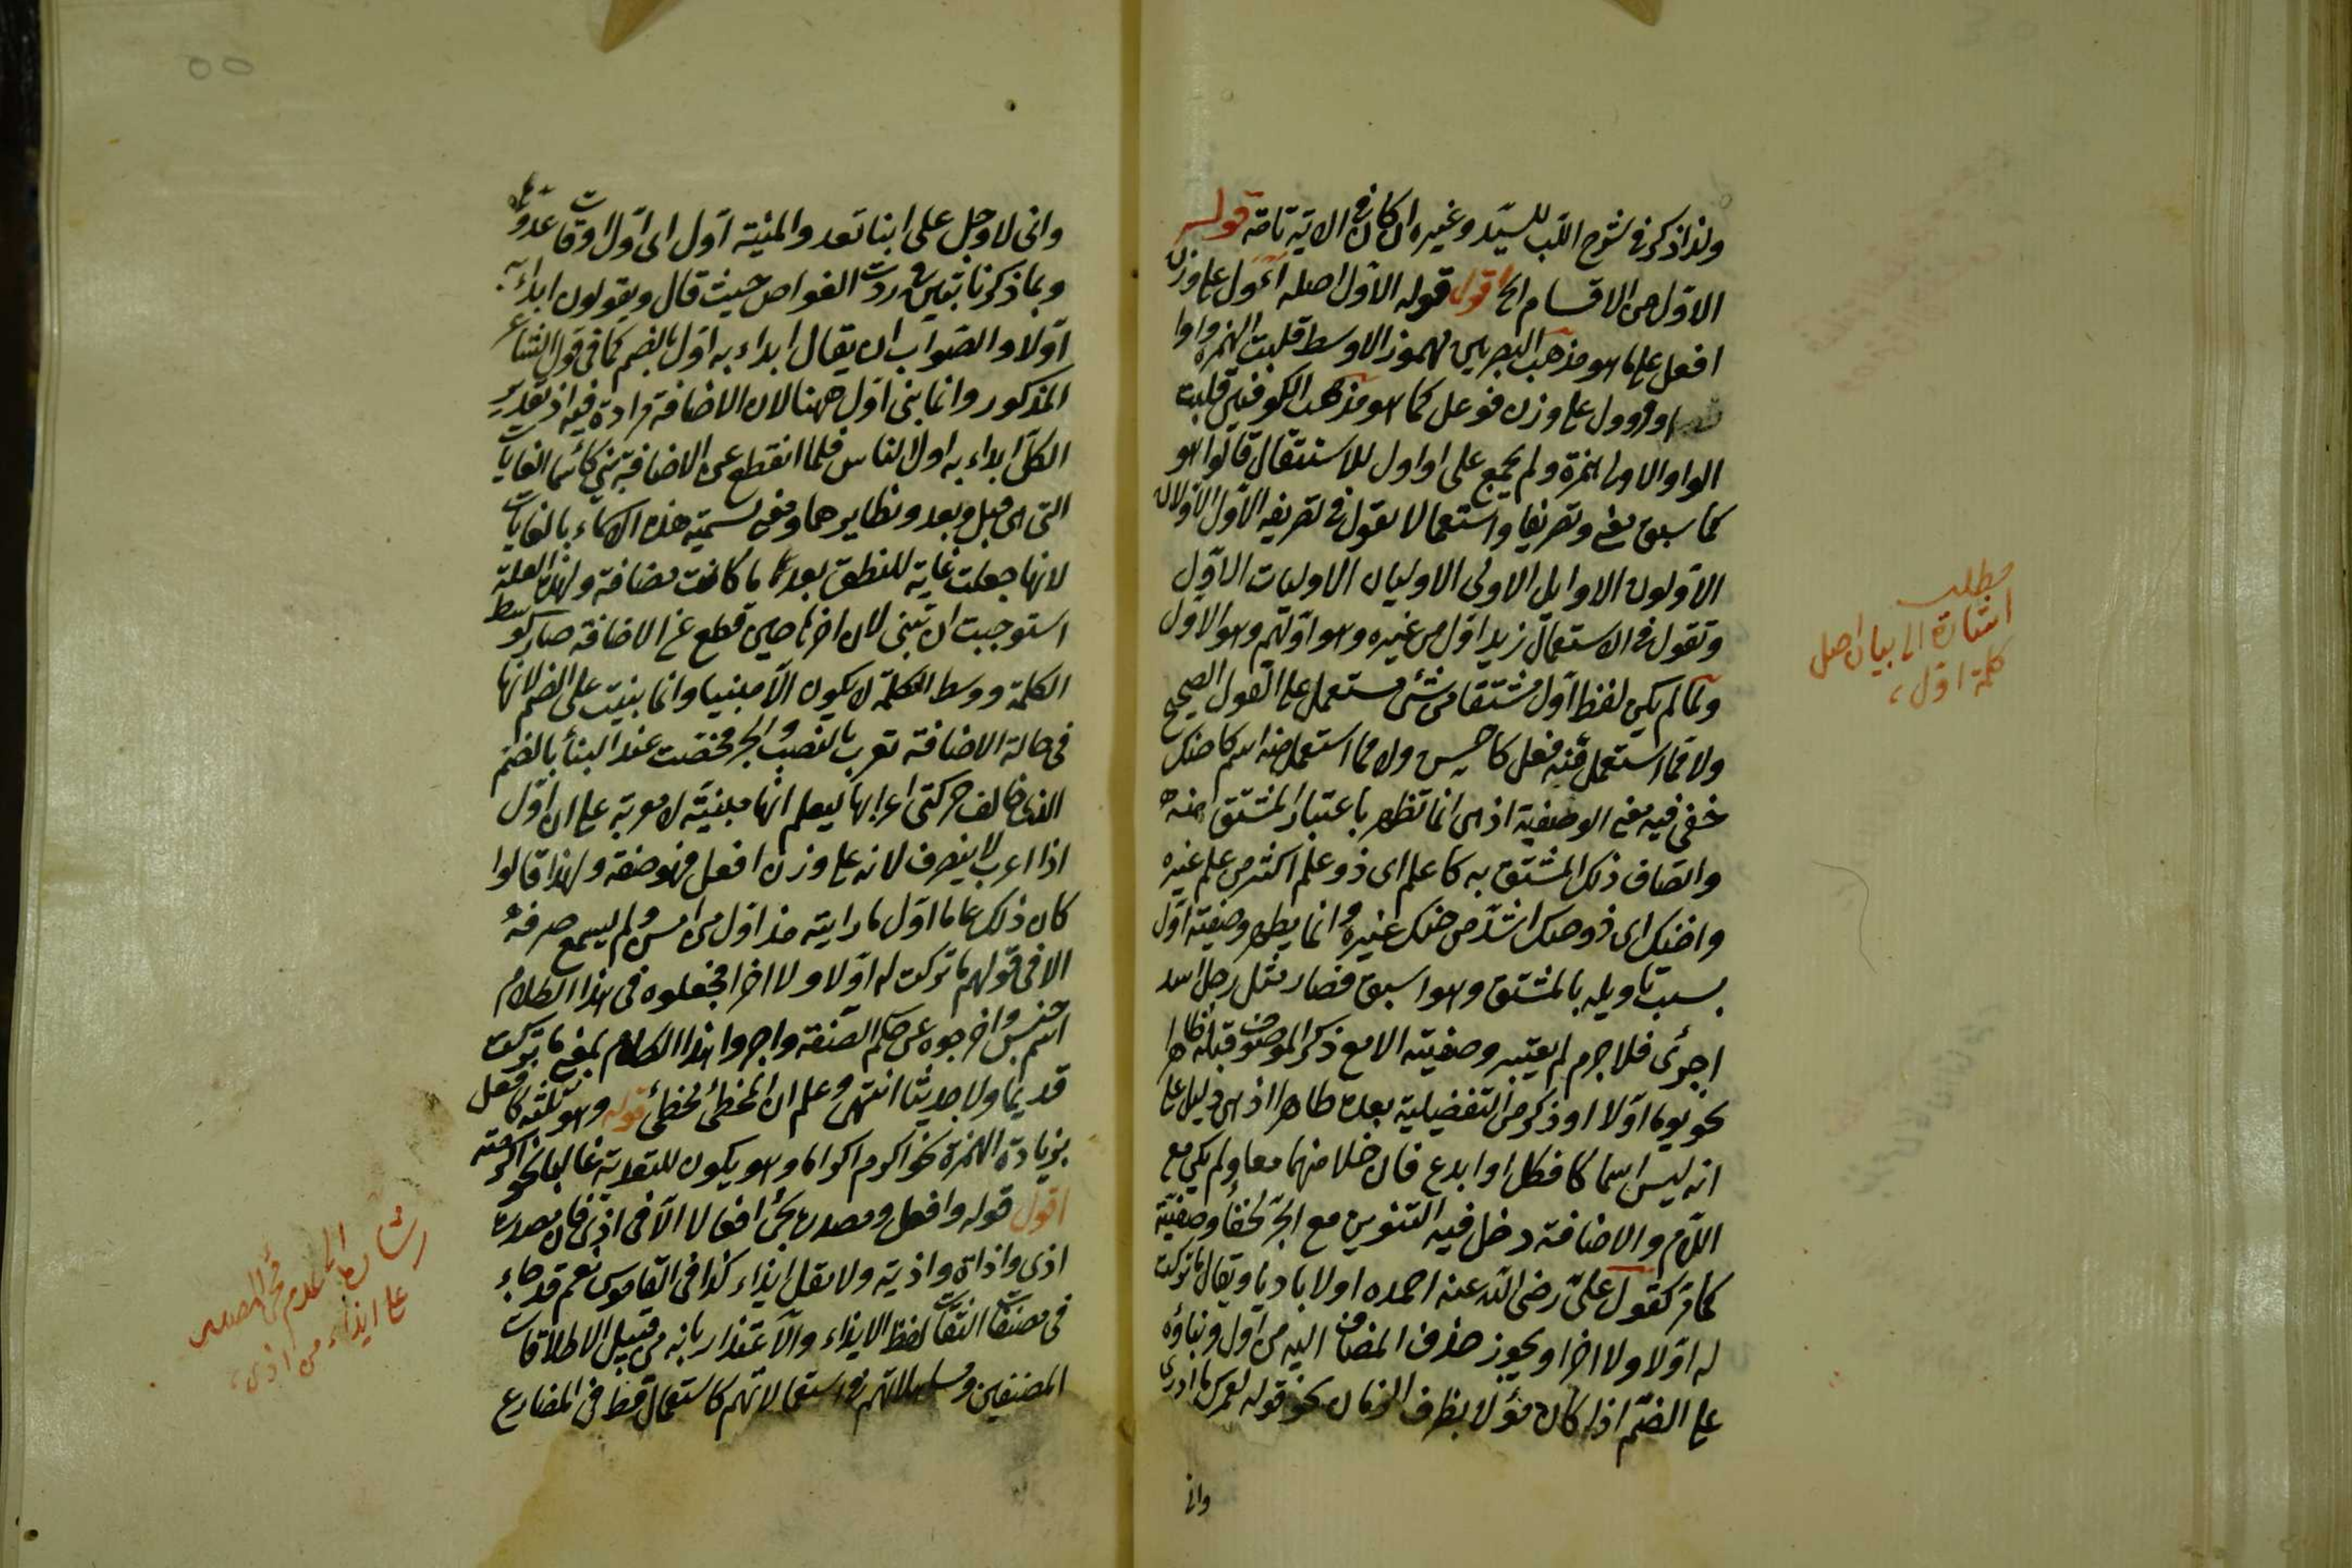 ولذا ذكر في شرح اللب للسيد وغيره ان كان في الاية تامة قوله
الاول من الاقسام الخ اقول قوله الاول اصله أءول على وزن
افعل على ما هو مذهب البصريين مهموز الاوسط قلبت الهمزة واوا
او ووول على وزن فوعل كما هو مذهب الكوفيين قلبت
الواو الاولى همزة ولم يجمع على اواول للاستثقال قالوا هو
كما سبق معنى وتصريفا واستعمالا تقول في تصريفه الاول الاولان
الاولون الاوايل الاولى الاوليان الاوليات الاول
وتقول في الاستعمال زيد اول من غيره وهو اولهم وهو الاول
ولما لم يكن لفظ اول مشتقا من شئ مستعمل على القول الصحيح
ولا مما استعمل منه فعل كاحسن ولا مما استعمل منه اسم كاحنك
خفى فيه معنى الوصفية اذ هى انما تظهر باعتبار المشتق منه
واتصاف ذلك المشتق به كاعلم اى ذو علم اكثر من علم غيره
واحنك اى ذو حنك اشد من حنك غيره وانما يظهر وصفية اول
بسبب تاويله بالمشتق وهو اسبق فصار مثل رجل اسد
اى جرئ فلا جرم لم يعتبر وصفيته الا مع ذكر الموصوف قبله ظاهرا
نحو يوما اولا او ذكر من التفضيلية بعده ظاهرا اذ هى دليل على
انه ليس اسما كافكل او ايدع فان خلا منهما معا ولم يكن مع
اللام والاضافة دخل فيه التنوين مع الجر لخفاء وصفيته
كما مر كقول على رضى الله عنه احمده اولا باديا ويقال ما تركت
له اولا ولا اخرا ويجوز حذف المضاف اليه من اول وبناؤه
على الضم اذا كان مؤولا بظرف الزمان نحو قوله لعمرك ما ادرى
وانى
مطلب
اشارة الى بيان اصل
كلمة اول
وانى لاوجل على اينا تعدو المنية اول اى اول اوقات عدوها
وبما ذكرنا تبين ورودة الغواص حيث قال ويقولون ابداء به
اولا والصواب ان يقال ابداء به اول بالضم كما في قول الشاعر
المذكور وانما بنى اول ههنا لان الاضافة مرادة فيه اذ تقدير
الكل ابداء به اول الناس فلما انقطع عن الاضافة بنى كاسماء الغايات
التى هى قبل وبعد ونظايرهما ومعنى تسمية هذه الاسماء بالغايات
لانها جعلت غاية للنطق بعد ما كانت مضافة ولهذه العلة
استوجبت ان تبنى لان اخرها حين قطع عن الاضافة صار كوسط
الكلمة ووسط الكلمة لا يكون الا مبنيا وانما بنيت على الضم لانها
في حالة الاضافة تعرب بالنصب والجر فخصت عند البناء بالضم
الذى خالف حركتى اعرابها ليعلم انها مبنية لا معربة على ان اول
اذا اعرب لا ينصرف لانه على وزن افعل فهو صفة ولهذا قالوا
كان ذلك عاما اول ما رايته مذ اول من امس ولم يسمع صرفه
الا في قولهم ما تركت له اولا ولا اخرا فجعلوه في هذا الكلام
اسم جنس واخرجوه عن حكم الصفة واجروا هذا الكلام بمعنى ما تركت
قديما ولا حديثا انتهى وعلم ان المخطئ مخطئ قوله وهو ثلثة كافعل
بزيادة الهمزة نحو اكرم اكراما وهو يكون للتعدية غالبا نحو اكرمته
اقول قوله وافعل ومصدره يجئ افعالا الا في اذى فان مصدره
اذى واذاة واذية ولا تقل ايذاء كذا في القاموس نعم قد جاء
في مصنفات الثقات لفظ الايذاء والاعتذار بانه من قبيل الاطلاقات
المصنفين ومسلمالاتهم واستعمالاتهم كاستعمال قط في المضارع
اشارة الى عدم مجئ المصدر
على ايذاء من اذى